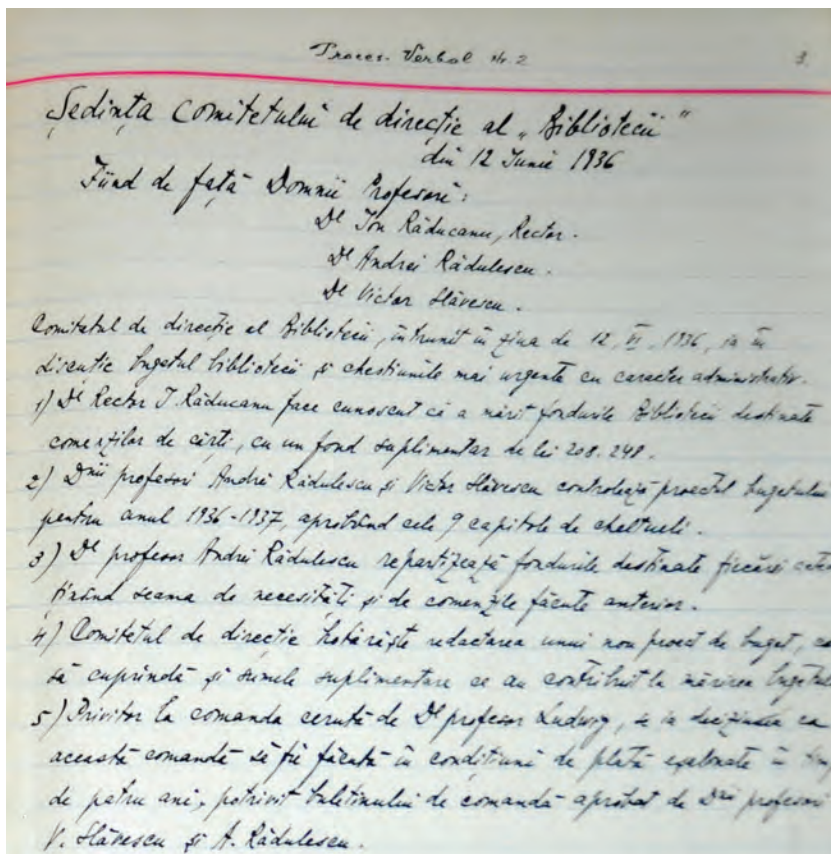 Proces-Verbal Nr. 2 3.
Ședința Comitetului de direcție al „Bibliotecii"
din 12 Iunie 1936
Fiind de față Domnii Profesori:
Dl Ion Răducanu, Rector.
Dl Andrei Rădulescu.
Dl Victor Slăvescu.
Comitetul de direcție al Bibliotecii, întrunit în ziua de 12.VI.1936, ia în
discuție bugetul bibliotecii și chestiunile mai urgente cu caracter administrativ.
1) Dl Rector I. Răducanu face cunoscut că a mărit fondurile Bibliotecii destinate
comenzilor de cărți, cu un fond suplimentar de lei 208.248.
2) Dnii profesori Andrei Rădulescu și Victor Slăvescu controlează proectul bugetului
pentru anul 1936-1937, aprobând cele 9 capitole de cheltueli.
3) Dl profesor Andrei Rădulescu repartizează fondurile destinate fiecărei
ținând seama de necesități și de comenzile făcute anterior.
4) Comitetul de direcție hotărăște redactarea unui nou proect de buget,
să cuprindă și sumele suplimentare ce au contribuit la mărirea
5) Privitor la comanda cerută de Dl profesor Ludwig, se ia deciziunea ca
această comandă să fie făcută în condițiuni de plată eșalonate în
de patru ani, potrivit buletinului de comandă aprobat de Dnii profesori
V. Slăvescu și A. Rădulescu.